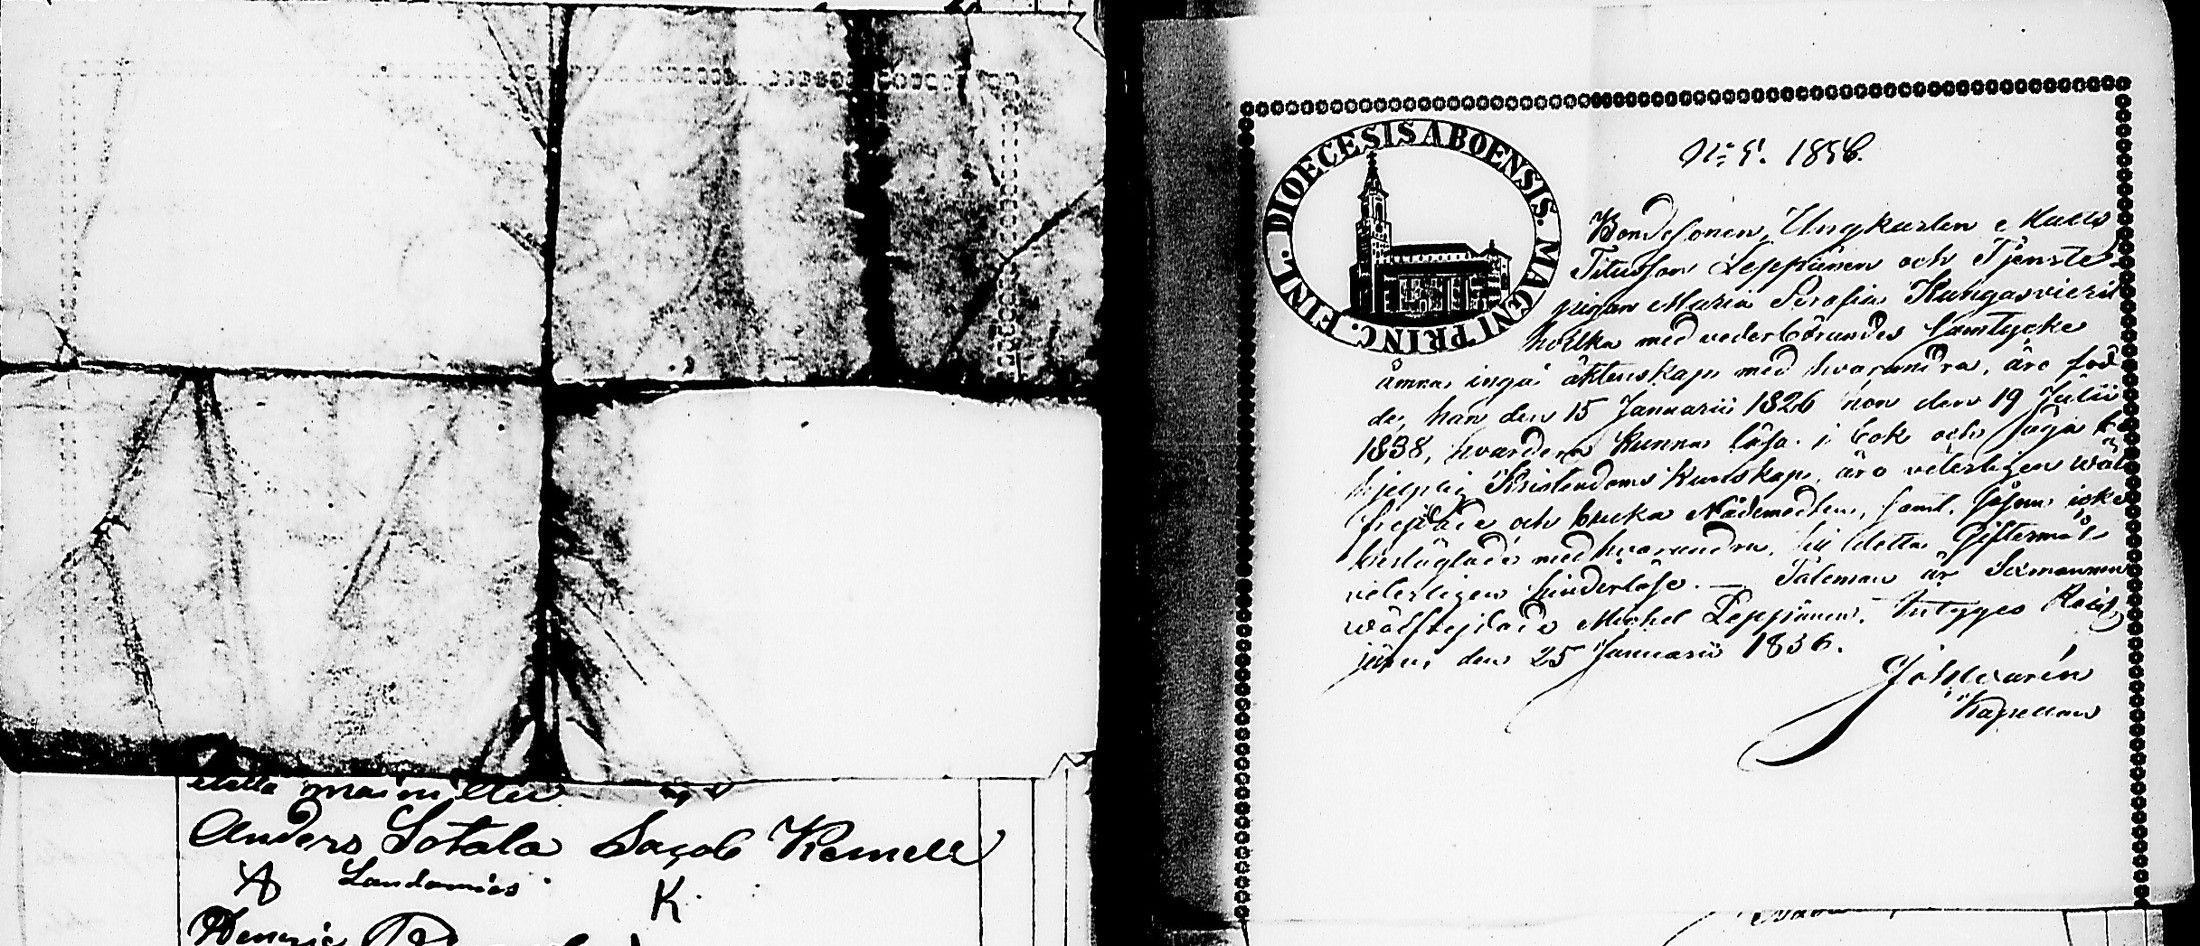 stellä main ittu
Anders Sotala Jacob Kemell
A Landamies K.
Henric
DIOECESIS ABOENSIS. MAGNI PRINC. FINL.
No 5. 1856.
Bondesonen, Ungkarlen Matts
Titusson Leppänen och Tjenste-
pigan Maria Serafia Kangasvieri
hvilka med vederbörandes samtycke
ämna ingå äktenskap med hvarandra, äro föd-
de, han den 15 Januarii 1826 hon den 19 Julii
1838, hvardera kunna läsa i bok och äga
hjelplig Kristendoms kunskap, äro veterligen wäl
frejdade och bruka Nådemedlen, samt, såsom icke
beslägtade med hvarandra, till detta Giftermål
veterligen hinderlöse. — Taleman är Sexmannen
wälfrejdade Michel Leppänen. Intygges
järvi den 25 Januarii 1856.
Joh Levarén
Kapellan